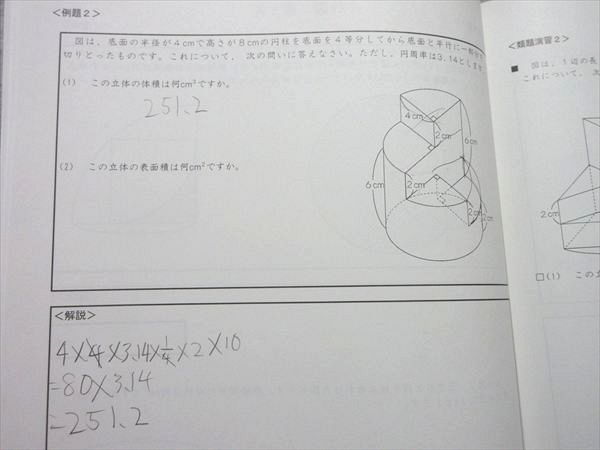 <例題2>
図は、底面の半径が4cmで高さが8cmの円柱を底面を4等分してから底面と平行に一部分を
切りとったものです。これについて、次の問いに答えなさい。ただし、円周率は3.14としま
(1) この立体の体積は何cm³ですか。
251.2
4cm
2cm
6cm
(2) この立体の表面積は何cm²ですか。
6cm
2cm
2cm
2cm
<解説>
4×4×3.14×1/4×2×10
=80×3.14
=251.2
<類題演習2>
■ 図は、1辺の長
これについて、次
2cm
□(1) この立